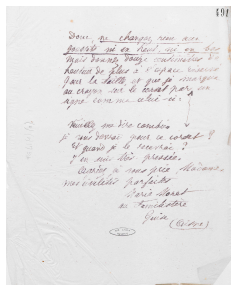 Donc, ne changez rien aux
goussets ni en haut, ni en bas
Mais donnez douze centimètres de
hauteur de plus à l'espace réservé
pour la taille, et que je marque
au crayon sur le corset par un
signe comme celui-ci
Veuillez me dire combien
je vous devrai pour ce corset ?
Et quand je le recevrai ?
J'en suis très pressée.
Agréez, je vous prie, Madame,
mes civilités parfaites
Marie Moret
au Familistère
Guise
(Aisne)